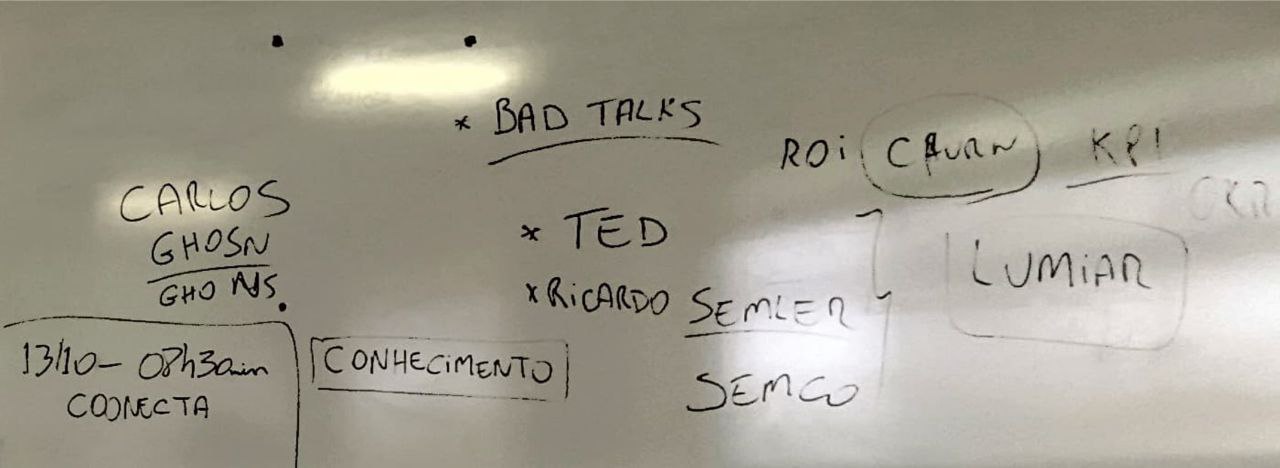 * BAD TALKS
ROi CHURN KPI
CARLOS
GHOSN
GHONS.
* TED
* RiCARDO SEMLER
SEMCO
LUMiAR
13/10 - 07h30min
COONECTA
CONHECiMENTO